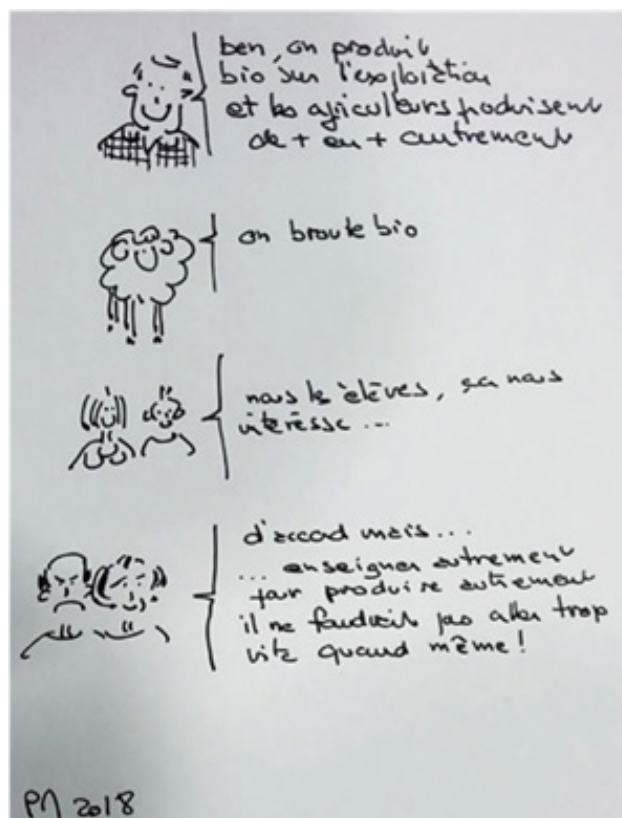 ben, on produit
bio sur l'exploitation
et les agriculteurs produisent
de + en + autrement
on broute bio
nous les élèves, ça nous
intéresse ...
d'accord mais...
... enseigner autrement
pour produire autrement
il ne faudrait pas aller trop
vite quand même !
2018